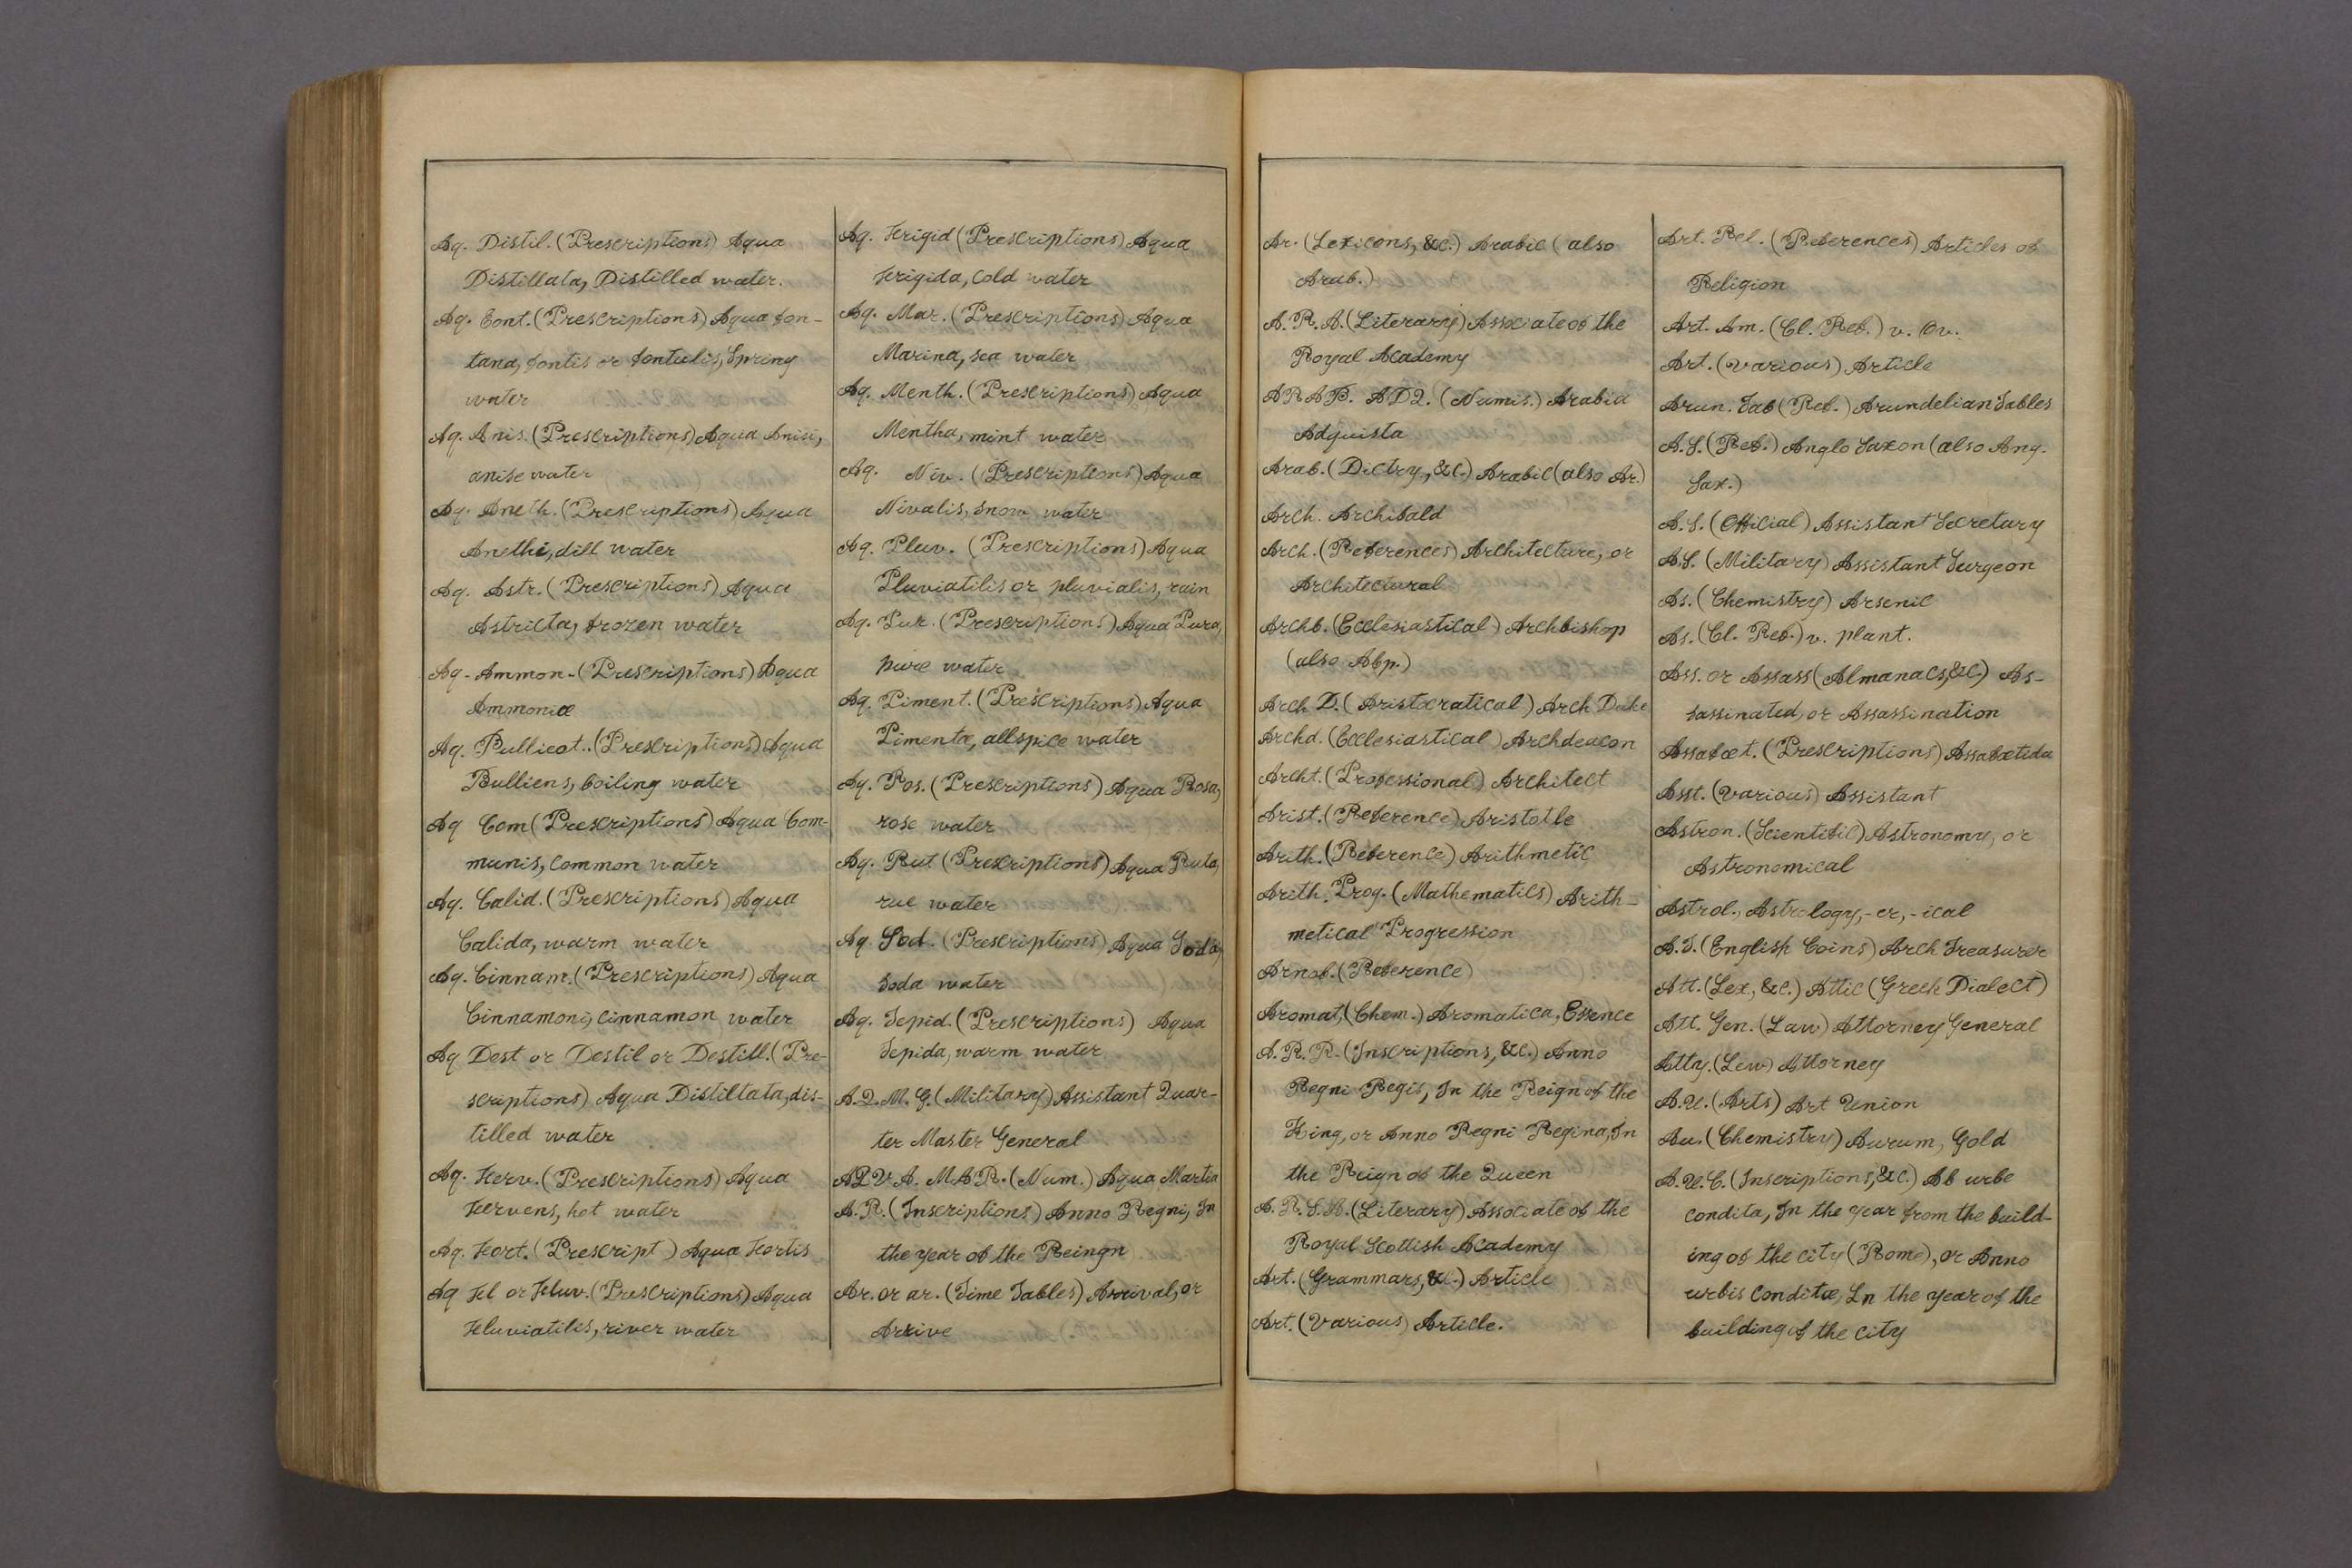 Aq. Distil. (Prescriptions) Aqua
Distillata, Distilled water.
Aq. Font. (Prescriptions) Aqua fon-
tana, fontis or fontulis, Spring
water
Aq. Anis. (Prescriptions) Aqua Anisi,
anise water
Aq. Aneth. (Prescriptions) Aqua
Anethi, dill water
Aq. Astr. (Prescriptions) Aqua
Astricta, frozen water
Aq. Ammon. (Prescriptions) Aqua
Ammoniæ
Aq. Bullieot.. (Prescriptions) Aqua
Bulliens, boiling water
Aq Com (Prescriptions) Aqua Com-
munis, common water
Aq. Calid. (Prescriptions) Aqua
Calida, warm water
Aq. Cinnam. (Prescriptions) Aqua
Cinnamoni, cinnamon water
Aq Dest or Destil or Destill. (Pre-
scriptions) Aqua Distillata, dis-
tilled water
Aq. Ferv. (Prescriptions) Aqua
Fervens, hot water
Aq. Fort. (Prescript) Aqua Fortis
Aq Fl or Fluv. (Prescriptions) Aqua
Fluviatiles, river water
Aq. Frigid (Prescriptions) Aqua
Frigida, cold water
Aq. Mar. (Prescriptions) Aqua
Marina, sea water
Aq. Menth. (Prescriptions) Aqua
Mentha, mint water
Aq. Niv. (Prescriptions) Aqua
Nivalis, snow water
Aq. Pluv. (Prescriptions) Aqua
Pluviatilis or pluvialis, rain
Aq. Pur. (Prescriptions) Aqua Pura,
pure water
Aq. Piment. (Prescriptions) Aqua
Pimentæ, allspice water
Aq. Ros. (Prescriptions) Aqua Rosa,
rose water
Aq. Rut (Prescriptions) Aqua Ruta,
rue water
Aq. Sod. (Prescriptions) Aqua Soda,
soda water
Aq. Tepid. (Prescriptions) Aqua
Tepida, warm water
A.Q.M.G. (Military) Assistant Quar-
ter Master General
AQVA. MAR. (Num.) Aqua Martia
A.R. (Inscriptions) Anno Regni, In
the year of the Reingn
Ar. or ar. (Time Tables) Arrival, or
Arrive
Ar. (Lexicons, &c.) Arabic (also
Arab.)
A.R.A. (Literary) Associate of the
Royal Academy
ARAB. ADQ. (Numis.) Arabia
Adquista
Arab. (Dictry., &c.) Arabic (also Ar.)
Arch. Archibald
Arch. (References) Architecture, or
Architectural
Archb. (Ecclesiastical) Archbishop
(also Abp.)
Arch D. (Aristocratical) Arch Duke
Archd. (Ecclesiastical) Archdeacon
Archt. (Professional) Architect
Arist. (Reference) Aristotle
Arith. (Reference) Arithmetic
Arith. Prog. (Mathematics) Arith-
metical Progression
Arnob. (Reference)
Aromat, (Chem.) Aromatica, Essence
A.R.R. (Inscriptions, &c.) Anno
Regni Regis, In the Reign of the
King, or Anno Regni Regina, In
the Reign of the Queen
A.R.S.A. (Literary) Associate of the
Royal Scottish Academy
Art. (Grammars, &c.) Article
Art. (Various) Article.
Art. Rel. (References) Articles of
Religion
Art. Am. (Cl. Ref.) v. Ov.
Art. (various) Article
Arun. Tab (Ref.) Arundelian Tables
A.S. (Ref.) Anglo Saxon (also Ang.
Sax.)
A.S. (Official) Assistant Secretary
A.S. (Military) Assistant Surgeon
As. (Chemistry) Arsenic
As. (Cl. Ref.) v. plant.
Ass. or Assass (Almanacs, &c.) As-
sassinated, or Assassination
Assafœt. (Prescriptions) Assafœtida
Asst. (various) Assistant
Astron. (Scientific) Astronomy, or
Astronomical
Astrol., Astrology, -er, -ical
A.T. (English Coins) Arch Treasurer
Att. (Lex., &c.) Attic (Greek Dialect)
Att. Gen. (Law) Attorney General
Atty. (Lew) Attorney
A.U. (Arts) Art Union
Au. (Chemistry) Aurum, Gold
A.U.C. (Inscriptions, &c.) Ab urbe
condita, In the year from the build-
ing of the city (Rome), or Anno
urbis conditæ, Ln the year of the
building of the city